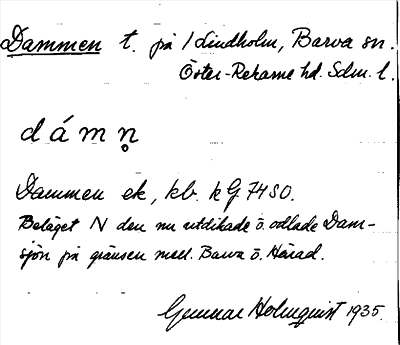 Dammen t. på 1 Lindholm, Barva sn.
Öster-Rekarne hd. Sdm. l.
dámn̥
Dammen ek, kb. kG 74 SO.
Beläget N den nu utdikade o. odlade Dam-
sjön på gränsen mell. Barva o. Härad.
Gunnar Holmquist 1935.